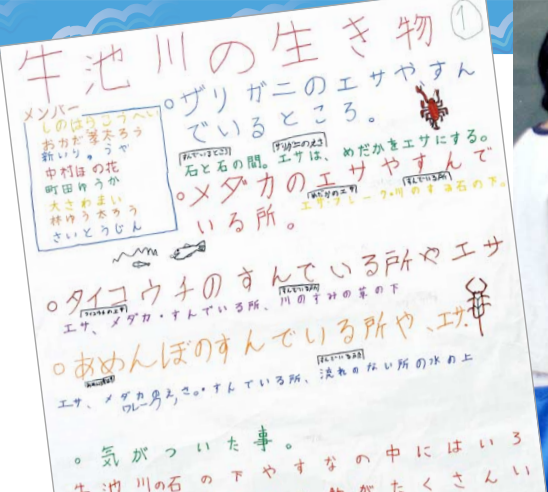 牛池川の生き物 ①
メンバー
しのはらこうへい
おかだ孝太ろう
新いりゅうや
中村ほの花
町田ゆうか
大さわまい
林ゆう太ろう
さいとうじん
○ザリガニのエサやすん
でいるところ。
すんでいるところ ザリガニのえさ
石と石の間。エサは、めだかをエサにする。
○メダカのエサやすんで
いる所。
めだかのエサ すんでいる所
エサ・フレーク・川のすみ石の下。
○タイコウチのすんでいる所やエサ
すんでいる所
エサ、メダカ・すんでいる所、川のすみの草の下
○あめんぼのすんでいる所や、エサ。
エサ、メダカのえさ。・すんでいる所、流れのない所の水の上
フレーク
。気がついた事。
牛池川の石の下やすなの中にはいろ
がたくさんい